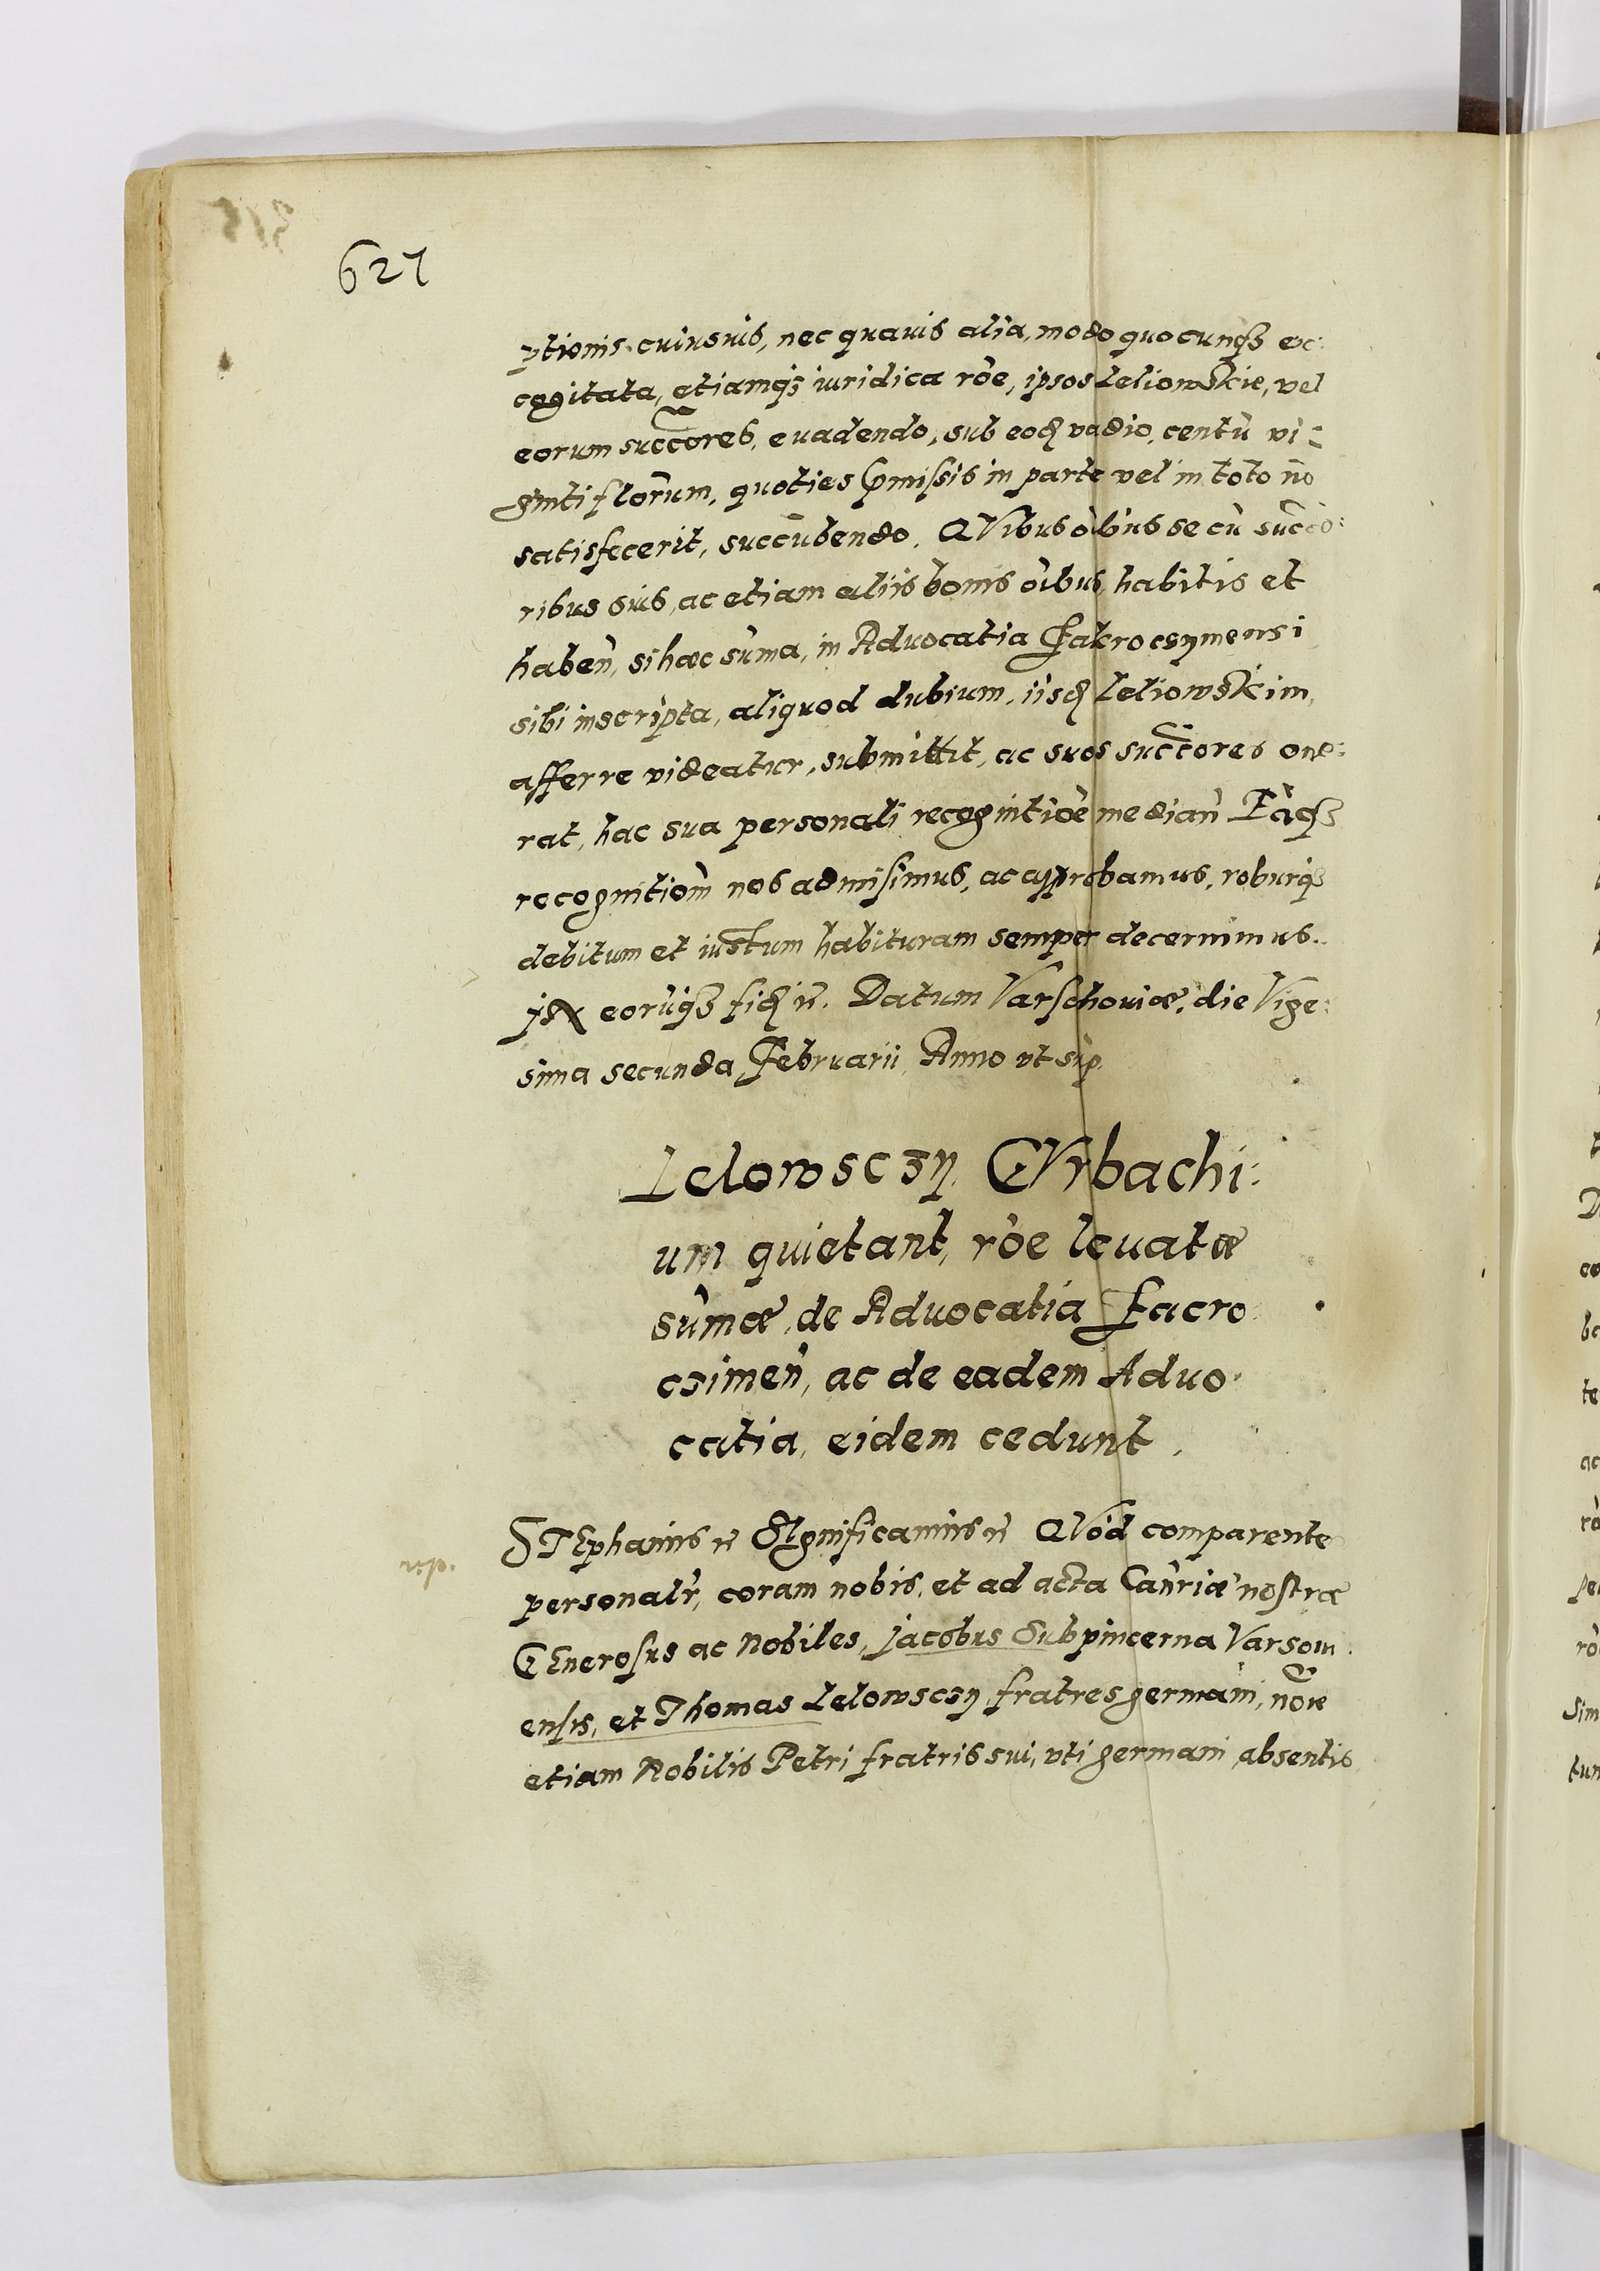 627
ptionis cuiusuis, nec quauis alia, modo quocunq3 ex:
cogitata, etiamq3 iuridica rõe, ipsos Leliowskie, vel
eorum succores, euadendo, sub eod vadio, centù vi:
ginti florum, quoties pmissis in parte vel in toto nõ
satisfecerit, succubendo. QVibus òibus se cù succo:
ribus suis, ac etiam aliis bonis òibus, habitis et
habeñ, si haec sùma, in Aduocatia Zakrocsymensi
sibi inscripta, aliquod dubium, iisd Leliowskim,
afferre videatur, submittit, ac suos succores one:
rat, hac sua personali recognitiòe mediañ Eàq3
recognitiom̃ nos admisimus, ac approbamus, roburq3
debitum et iustum habituram semper decernimus.
eorùq3 fid Datum Varschouiæ, die Vige:
sima secunda Februarii, Anno vt sup.
Lelowsc3y GVrbachi:
um quietant, ròe leuatæ
sùmæ, de Aduocatia Zacro
csimeñ, ac de eadem Aduo:
catia, eidem cedunt.
STEphanus SIgnificamus QVòd comparente
personalr̀, coram nobis, et ad acta Cañriæ nostræ
GEnerosus ac Nobiles, Jacobus Subpincerna Varsoui
ensis, et Thomas Lelowscsy, fratres germani, nõie
etiam Nobilis Petri fratris sui, vti germani absentis